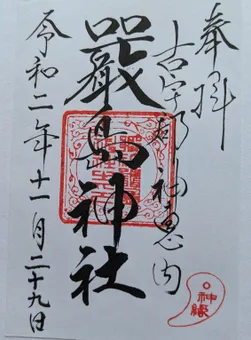 奉拝
吉字乃神恵内
嚴島神社
令和二年十一月二十九日
神縁